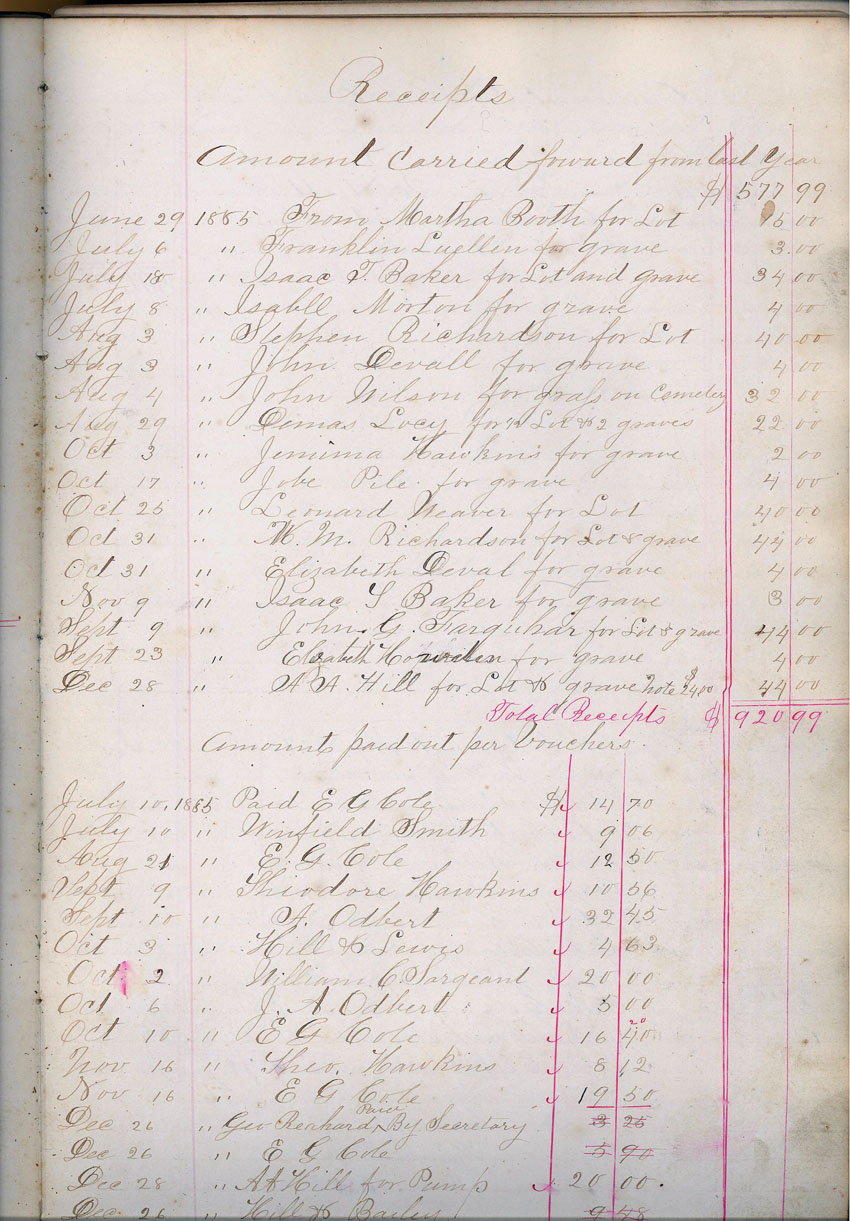 Receipts
Amount Carried foward from last Year
$ 577 99
June 29 1885 From Martha Booth for Lot 15 00
July 6 " Franklin Luellen for grave 3.00
July 18 " Isaac T. Baker for Lot and grave 34 00
July 8 " Isabell Morton for grave 4 00
Aug 3 " Stephen Richardson for Lot 40 00
Aug 3 " John Devall for grave 4 00
Aug 4 " John Wilson for grass on Cemetery 32 00
Aug 29 " Demas Lucy for ½ Lot & 2 graves 22 00
Oct 3 " Jemima Hawkins for grave 2 00
Oct 17 " Jobe Pile for grave 4 00
Oct 25 " Leonard Weaver for Lot 40 00
Oct 31 " W. M. Richardson for Lot & grave 44 00
Oct 31 " Elizabeth Deval for grave 4 00
Nov 9 " Isaac T Baker for grave 3 00
Sept 9 " John. G. Farquhar for Lot & grave 44 00
Sept 23 " Elizabeth for grave 4 00
Dec 28 " A A. Hill for Lot & grave note $24,00 44 00
Total Receipts $ 920 99
Amounts paid out per Vouchers.
July 10, 1885 Paid E G Cole $ 14 70
July 10 " Winfield Smith 9 06
Aug 21 " E. G. Cole 12 50
Sept 9 " Theodore Hawkins 10 56
Sept 10 " A. Odbert 32 45
Oct 3 " Hill & Lewis 4 63
Oct 2 " William C. Sargeant 20 00
Oct 6 " J. A. Odbert 5 00
Oct 10 " E G Cole 16 40 20
Nov 16 " Theo. Hawkins 8 12
Nov 16 " E G Cole 19 50
Dec 26 " Geo Reahard Paid By Secretary 3 25
Dec 26 " E G Cole 5 90
Dec 28 " AA Hill for Pump 20 00.
Dec 26 " Hill & Bailey 9 48